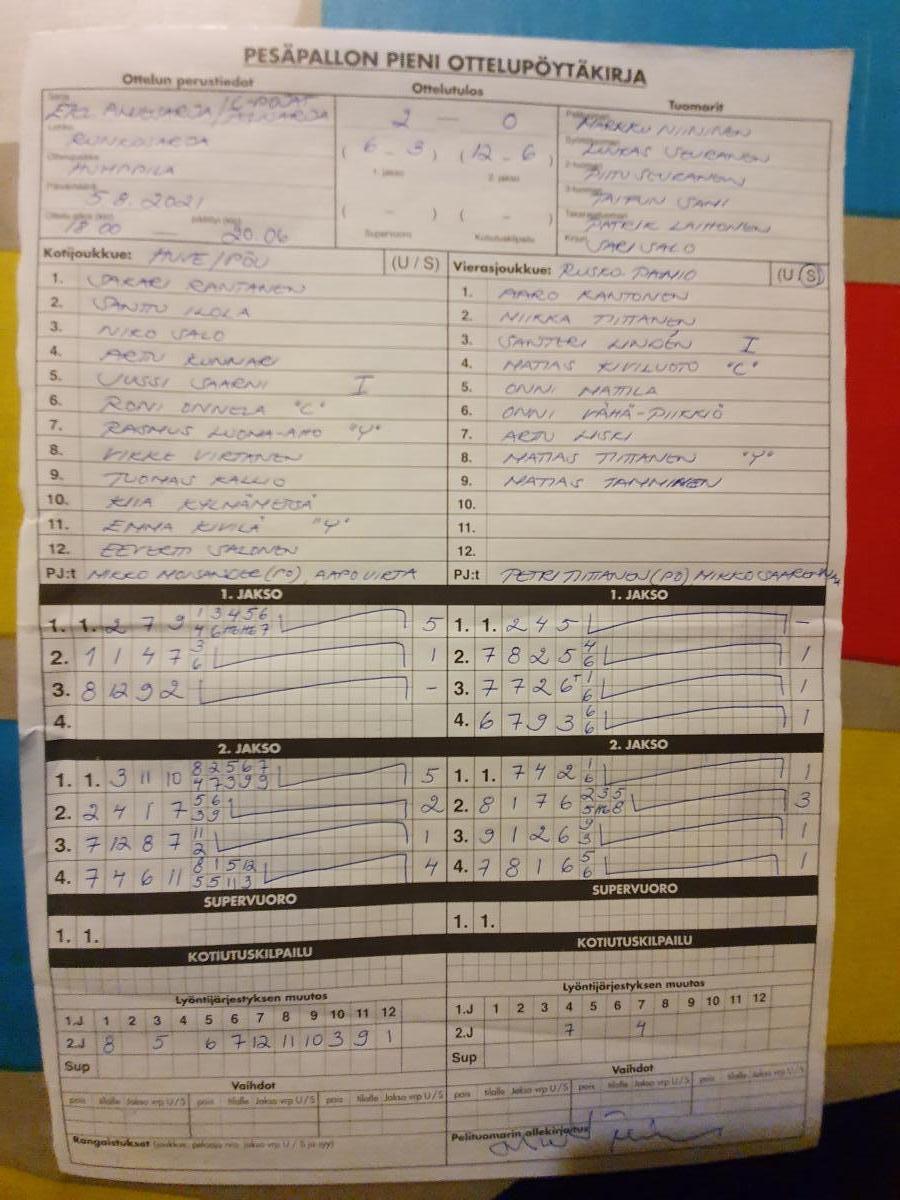 PESÄPALLON PIENI OTTELUPÖYTÄKIRJA
Ottelun perustiedot
Ottelutulos
Tuomarit
Sarja
C-POJAT
RUNKOSARJA
HUHTIILA
5.8.2021
18.00 — 20.06
2 — 0
( 6 - 3 ) ( 12 - 6 )
1. jakso 2. jakso
( - ) ( - )
Supervuoro Kotiutuskilpailu
MARKKU NIININEN
LUUKAS SEURANEN
PIITU SEURANEN
SANI
PATRIK LAIHONEN
SARI SALO
Kotijoukkue: HUVE/PÖU (U / S)
1. SAKARI RANTANEN
2. SANTTU IKOLA
3. NIKO SALO
4. ARTTU KUNNARI
5. JUSSI SAARNI I
6. RONI ONNELA "C"
7. RASMUS LUOMA-AHO "Y"
8. VIRTANEN
9. TUOMAS KALLIO
10. KIIA KYLNÄMETSÄ
11. EMMA KIVILÄ "Y"
12. EEVERTTI SALONEN
PJ:t MIKKO MOISANDER (PO), AAPO VIRTA
Vierasjoukkue: RUSKO. PAINIO (U / S)
1. AARO KANTONEN
2. NIIKKA TIITTANEN
3. SANTERI LINDÉN I
4. MATIAS KIVILUOTO "C"
5. ONNI MATTILA
6. ONNI VÄHÄ-PIIKKIÖ
7. ARTTU LISKI
8. MATIAS TIITTANEN "Y"
9. MATIAS TAMMINEN
10.
11.
12.
PJ:t PETRI TIITTANEN (PO) MIKKO
1. JAKSO
1. 1. 2 7 9 1 3 4 5 6 5
4 6 7
2. 1 1 4 7 3 1
6
3. 8 12 9 2 -
4.
1. JAKSO
1. 1. 2 4 5 -
2. 7 8 2 5 4 1
6
3. 7 7 2 6 1 1
6
4. 6 7 9 3 6 1
6
2. JAKSO
1. 1. 3 11 10 8 2 5 6 7 5
4 7 3 9 9
2. 2 4 1 7 5 6 2
3 9
3. 7 12 8 7 11 1
2
4. 7 4 6 11 8 1 5 12 4
5 5 11 3
2. JAKSO
1. 1. 7 4 2 1 1
6
2. 8 1 7 6 2 3 5 3
5 8
3. 9 1 2 6 9 1
3
4. 7 8 1 6 5 1
6
SUPERVUORO
1. 1.
SUPERVUORO
1. 1.
KOTIUTUSKILPAILU
KOTIUTUSKILPAILU
Lyöntijärjestyksen muutos
1.J 1 2 3 4 5 6 7 8 9 10 11 12
2.J 8 5 6 7 12 11 10 3 9 1
Sup
Lyöntijärjestyksen muutos
1.J 1 2 3 4 5 6 7 8 9 10 11 12
2.J 7 4
Sup
Vaihdot
pois tilalle Jakso vrp U / S pois tilalle Jakso vrp U / S pois tilalle Jakso vrp U / S
Vaihdot
pois tilalle Jakso vrp U / S pois tilalle Jakso vrp U / S pois tilalle Jakso vrp U / S
Rangaistukset
Pelituomarin allekirjoitus